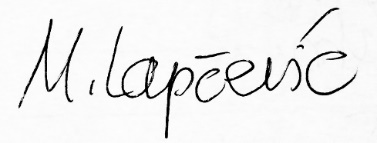 M. Lapčević